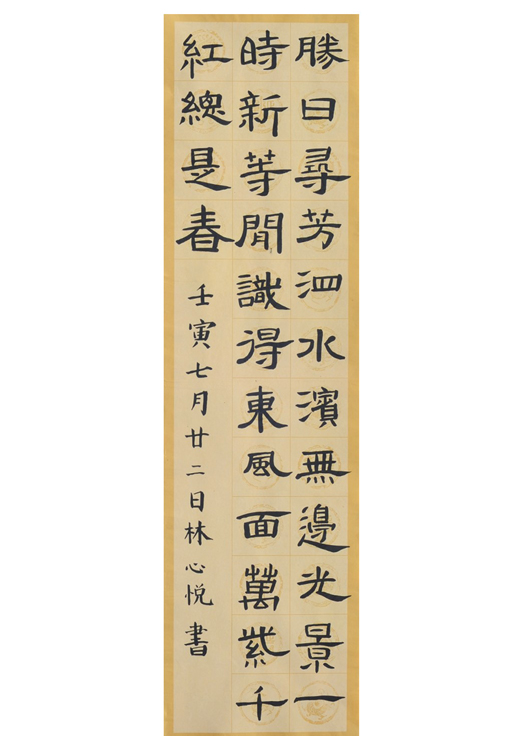 勝日尋芳泗水濱無邊光景一
時新等閒識得東風面萬紫千
紅總是春
壬寅七月廿二日林心悦書